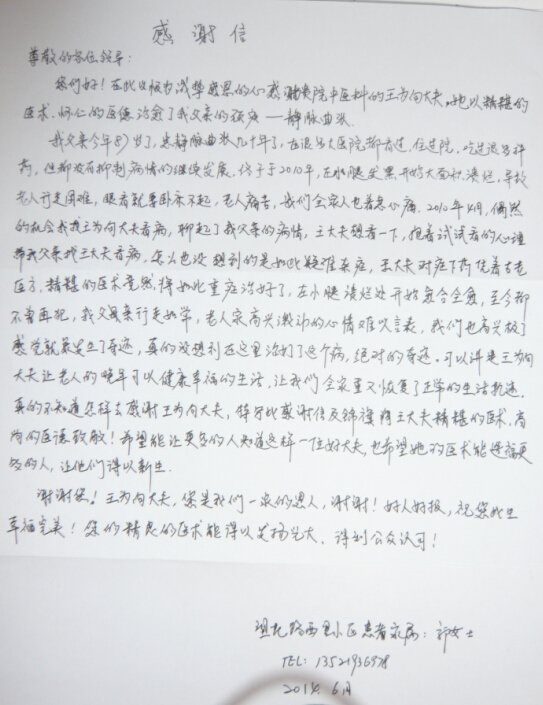 感谢信
尊敬的各位领导：
您们好！在此以极为诚挚感恩的心感谢贵院中医科的王为向大夫。她以精湛的
医术，怀仁的医德治愈了我父亲的顽疾——静脉曲张。
我父亲今年87岁了，患静脉曲张几十年了，在很多大医院都看过，住过院，吃过很多种
药，但都没有抑制病情的继续发展，终于于2010年，左小腿发黑开始大面积溃烂，导致
老人行走困难，眼看就要卧床不起，老人痛苦，我们全家人也着急心痛。2010年4月，偶然
的机会我找王为向大夫看病，聊起了我父亲的病情，王大夫想看一下，抱着试试看的心理
带我父亲找王大夫看病，怎么也没想到的是如此疑难杂症，王大夫对症下药凭着古老
医方，精湛的医术竟然将如此重症治好了，左小腿溃烂处开始愈合全愈，至今都
不曾再犯，我父亲行走如常，老人家高兴激动的心情难以言表，我们也高兴极了
感觉就是发生了奇迹，真的没想到在这里治好了这个病，绝对的奇迹。可以讲是王为向
大夫让老人的晚年可以健康幸福的生活，让我们全家重又恢复了正常的生活轨迹。
真的不知道怎样去感谢王为向大夫，特寄此感谢信及锦旗向王大夫精湛的医术，高
尚的医德致敬！希望能让更多的人知道这样一位好大夫，也希望她的医术能造福更
多的人，让他们得以新生。
谢谢您！王为向大夫，您是我们一家的恩人，谢谢！好人好报，祝您此生
幸福完美！您的精良的医术能得以发扬光大，得到公众认可！
路西里小区患者家属：祁女士
TEL：13521936578
2014.6月